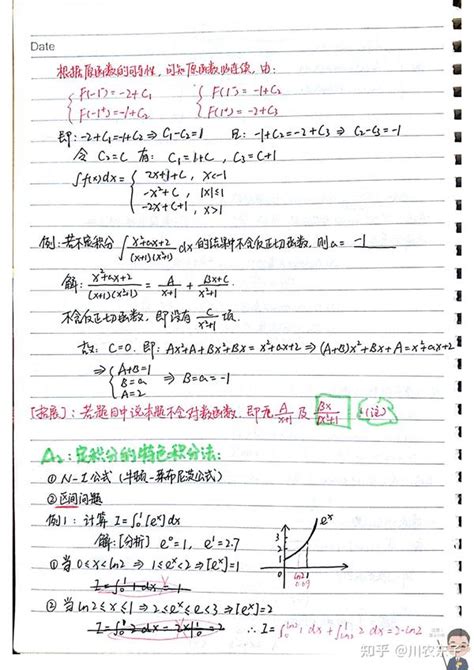 Date
根据原函数的可导性，可知原函数必连续，由：
{ F(-1⁻)=-2+C₁ { F(1⁻)=-1+C₂
{ F(-1⁺)=-1+C₂ { F(1⁺)=-2+C₃
即：-2+C₁=-1+C₂ ⇒ C₁-C₂=1 且：-1+C₂=-2+C₃ ⇒ C₂-C₃=-1
令 C₂=C 有： C₁=1+C , C₃=C+1
∫f(x)dx = { 2x+1+C , x<-1
-x²+C , |x|≤1
-2x+C+1 , x>1
例：若不定积分 ∫ (x²+ax+2)/((x+1)(x²+1)) dx 的结果中不含反正切函数，则a= -1
解： (x²+ax+2)/((x+1)(x²+1)) = A/(x+1) + (Bx+C)/(x²+1)
不含反正切函数，即没有 C/(x²+1) 项.
C=0. 即： Ax²+A+Bx²+Bx=x²+ax+2 ⇒ (A+B)x²+Bx+A=x²+ax+2
⇒ { A+B=1
B=a ⇒ B=a=-1
A=2
[拓展]：若题目中说本题不含对数函数，即无 A/(x+1) 及 Bx/(x²+1) (注)
A₂：定积分的特色积分法：
① N-L公式 (牛顿-莱布尼茨公式)
② 区间问题
例1：计算 I=∫₀¹[eˣ]dx
解：[分析] e⁰=1, e¹=2.7
①当 0≤x<ln2 ⇒ 1≤eˣ<2 ⇒ [eˣ]=1
I=∫₀¹ 1 dx = 1
②当 ln2≤x≤1 ⇒ 2≤eˣ≤e<3 ⇒ [eˣ]=2
I=∫₀¹ 2 dx = 2x|₀¹ = 2 ∴ I=∫₀^ln2 1 dx + ∫_ln2^1 2 dx = 2-ln2
eˣ
3
2
1
ln2 1
0.69
知乎 @川农